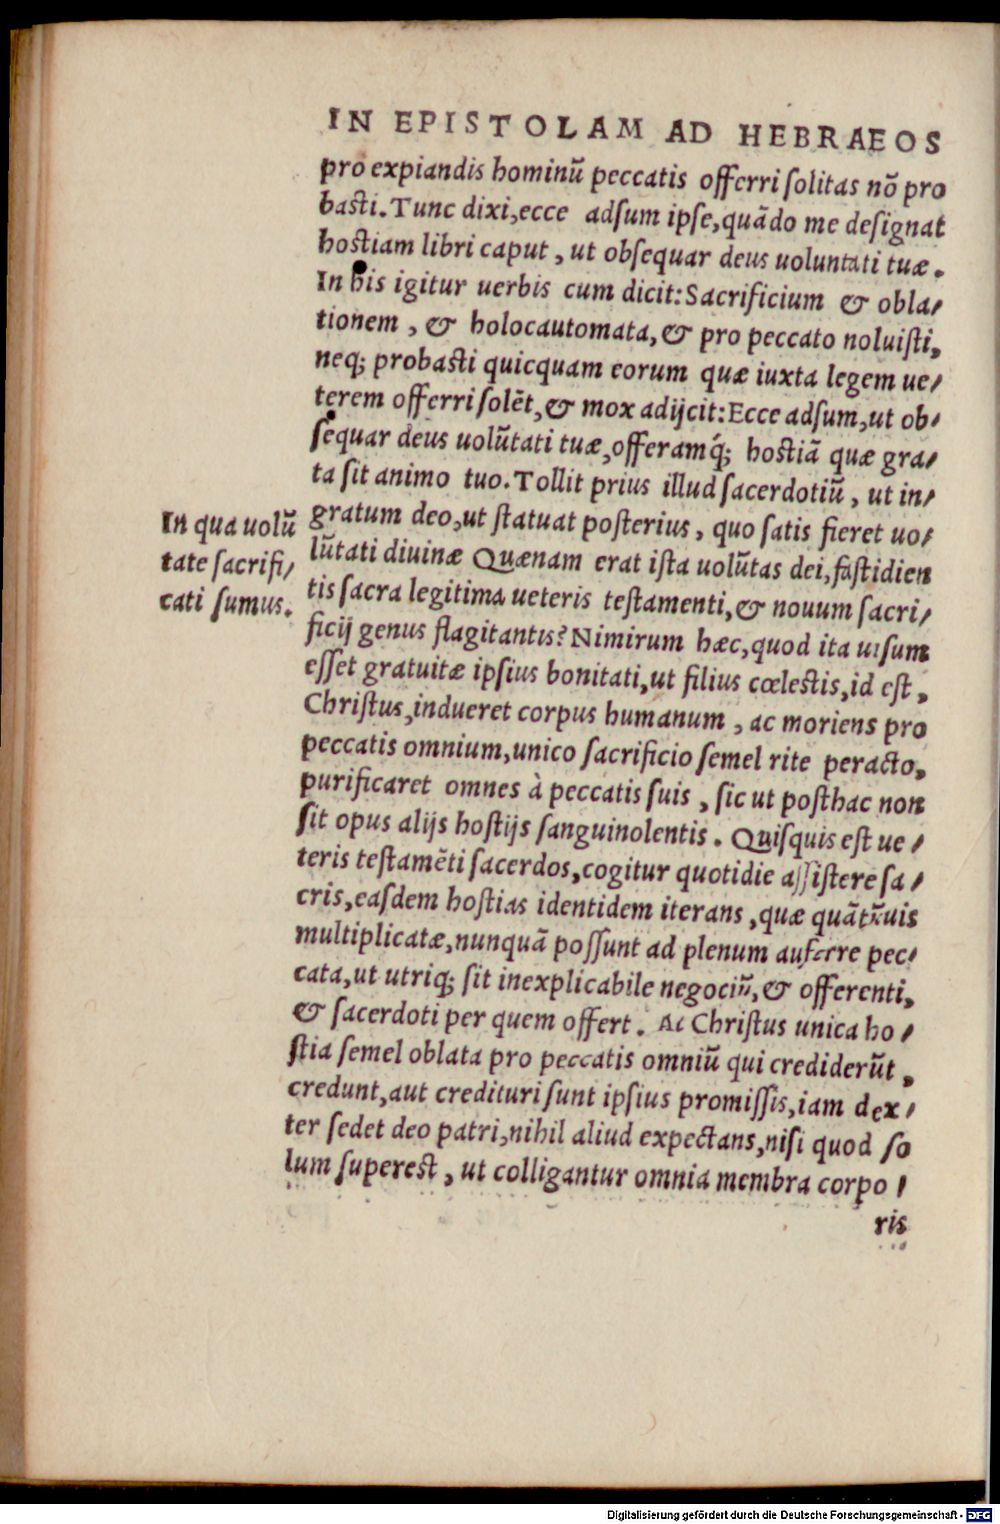 IN EPISTOLAM AD HEBRAEOS
pro expiandis hominũ peccatis offerri ſolitas nõ pro
baſti. Tunc dixi, ecce adſum ipſe, quãdo me deſignat
hoſtiam libri caput, ut obſequar deus uoluntati tuæ.
In his igitur uerbis cum dicit: Sacrificium & obla⸗
tionem, & holocautomata, & pro peccato noluiſti,
neq; probaſti quicquam eorum quæ iuxta legem ue⸗
terem offerri ſolẽt, & mox adijcit: Ecce adſum, ut ob⸗
ſequar deus uolũtati tuæ, offeramq́; hoſtiã quæ gra⸗
ta ſit animo tuo. Tollit prius illud ſacerdotiũ, ut in⸗
gratum deo, ut ſtatuat poſterius, quo ſatis fieret uo⸗
lũtati diuinæ Quænam erat iſta uolũtas dei, faſtidien
tis ſacra legitima ueteris teſtamenti, & nouum ſacri⸗
ficij genus flagitantis? Nimirum hæc, quod ita uiſum
eſſet gratuitæ ipſius bonitati, ut filius cœleſtis, id eſt,
Chriſtus, indueret corpus humanum, ac moriens pro
peccatis omnium, unico ſacrificio ſemel rite peracto,
purificaret omnes à peccatis ſuis, ſic ut poſthac non
ſit opus alijs hoſtijs ſanguinolentis. Quiſquis eſt ue⸗
teris teſtamẽti ſacerdos, cogitur quotidie aſſiſtere ſa⸗
cris, eaſdem hoſtias identidem iterans, quæ quãtũuis
multiplicatæ, nunquã poſſunt ad plenum auferre pec⸗
cata, ut utriq; ſit inexplicabile negociũ, & offerenti,
& ſacerdoti per quem offert. Ac Chriſtus unica ho⸗
ſtia ſemel oblata pro peccatis omniũ qui crediderũt,
credunt, aut credituri ſunt ipſius promiſſis, iam dex⸗
ter ſedet deo patri, nihil aliud expectans, niſi quod ſo
lum ſupereſt, ut colligantur omnia membra corpo⸗
ris
In qua uolũ
tate ſacrifi⸗
cati ſumus.
Digitalisierung gefördert durch die Deutsche Forschungsgemeinschaft - DFG